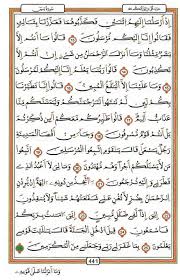 إِذْ أَرْسَلْنَا إِلَيْهِمُ اثْنَيْنِ فَكَذَّبُوهُمَا فَعَزَّزْنَا بِثَالِثٍ
فَقَالُوا إِنَّا إِلَيْكُم مُّرْسَلُونَ قَالُوا مَا أَنتُمْ إِلَّا
بَشَرٌ مِّثْلُنَا وَمَا أَنزَلَ الرَّحْمَٰنُ مِن شَيْءٍ إِنْ أَنتُمْ إِلَّا
تَكْذِبُونَ قَالُوا رَبُّنَا يَعْلَمُ إِنَّا إِلَيْكُمْ لَمُرْسَلُونَ
وَمَا عَلَيْنَا إِلَّا الْبَلَاغُ الْمُبِينُ قَالُوا إِنَّا تَطَيَّرْنَا
بِكُمْ لَئِن لَّمْ تَنتَهُوا لَنَرْجُمَنَّكُمْ وَلَيَمَسَّنَّكُم
مِّنَّا عَذَابٌ أَلِيمٌ قَالُوا طَائِرُكُم مَّعَكُمْ أَئِن ذُكِّرْتُم
بَلْ أَنتُمْ قَوْمٌ مُّسْرِفُونَ وَجَاءَ مِنْ أَقْصَا
الْمَدِينَةِ رَجُلٌ يَسْعَىٰ قَالَ يَا قَوْمِ اتَّبِعُوا الْمُرْسَلِينَ اتَّبِعُوا
مَن لَّا يَسْأَلُكُمْ أَجْرًا وَهُم مُّهْتَدُونَ وَمَا لِيَ لَا أَعْبُدُ الَّذِي
فَطَرَنِي وَإِلَيْهِ تُرْجَعُونَ أَأَتَّخِذُ مِن دُونِهِ آلِهَةً إِن
يُرِدْنِ الرَّحْمَٰنُ بِضُرٍّ لَّا تُغْنِ عَنِّي شَفَاعَتُهُمْ شَيْئًا وَلَا
يُنقِذُونِ إِنِّي إِذًا لَّفِي ضَلَالٍ مُّبِينٍ إِنِّي آمَنتُ بِرَبِّكُمْ
فَاسْمَعُونِ قِيلَ ادْخُلِ الْجَنَّةَ قَالَ يَا لَيْتَ قَوْمِي
يَعْلَمُونَ بِمَا غَفَرَ لِي رَبِّي وَجَعَلَنِي مِنَ الْمُكْرَمِينَ
441
وَمَا أَنزَلْنَا عَلَىٰ قَوْمِهِ